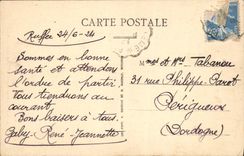 CARTE POSTALE
Ruffec 24/6-24
Sommes en bonne
santé et attendons
l'ordre de partir
Tous tiendrons au
courant.
Bons baisers à tous
Gaby - René - Jeannette
Mme et Mr Tabaneu
31 rue Philippe-Parrot
Périgueux
Dordogne)